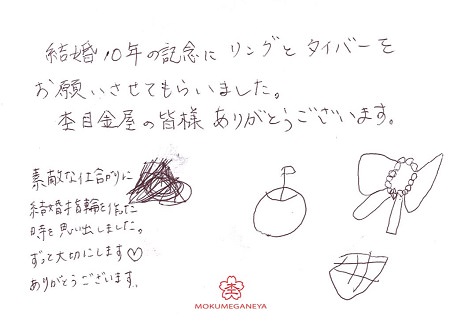 結婚10年の記念に リングと タイバーを
お願いさせてもらいました。
杢目金屋の皆様 ありがとうございます。
素敵な仕上がりに
結婚指輪を作った
時を思い出しました。
ずっと大切にします♡
ありがとうございます。
杢
MOKUMEGANEYA